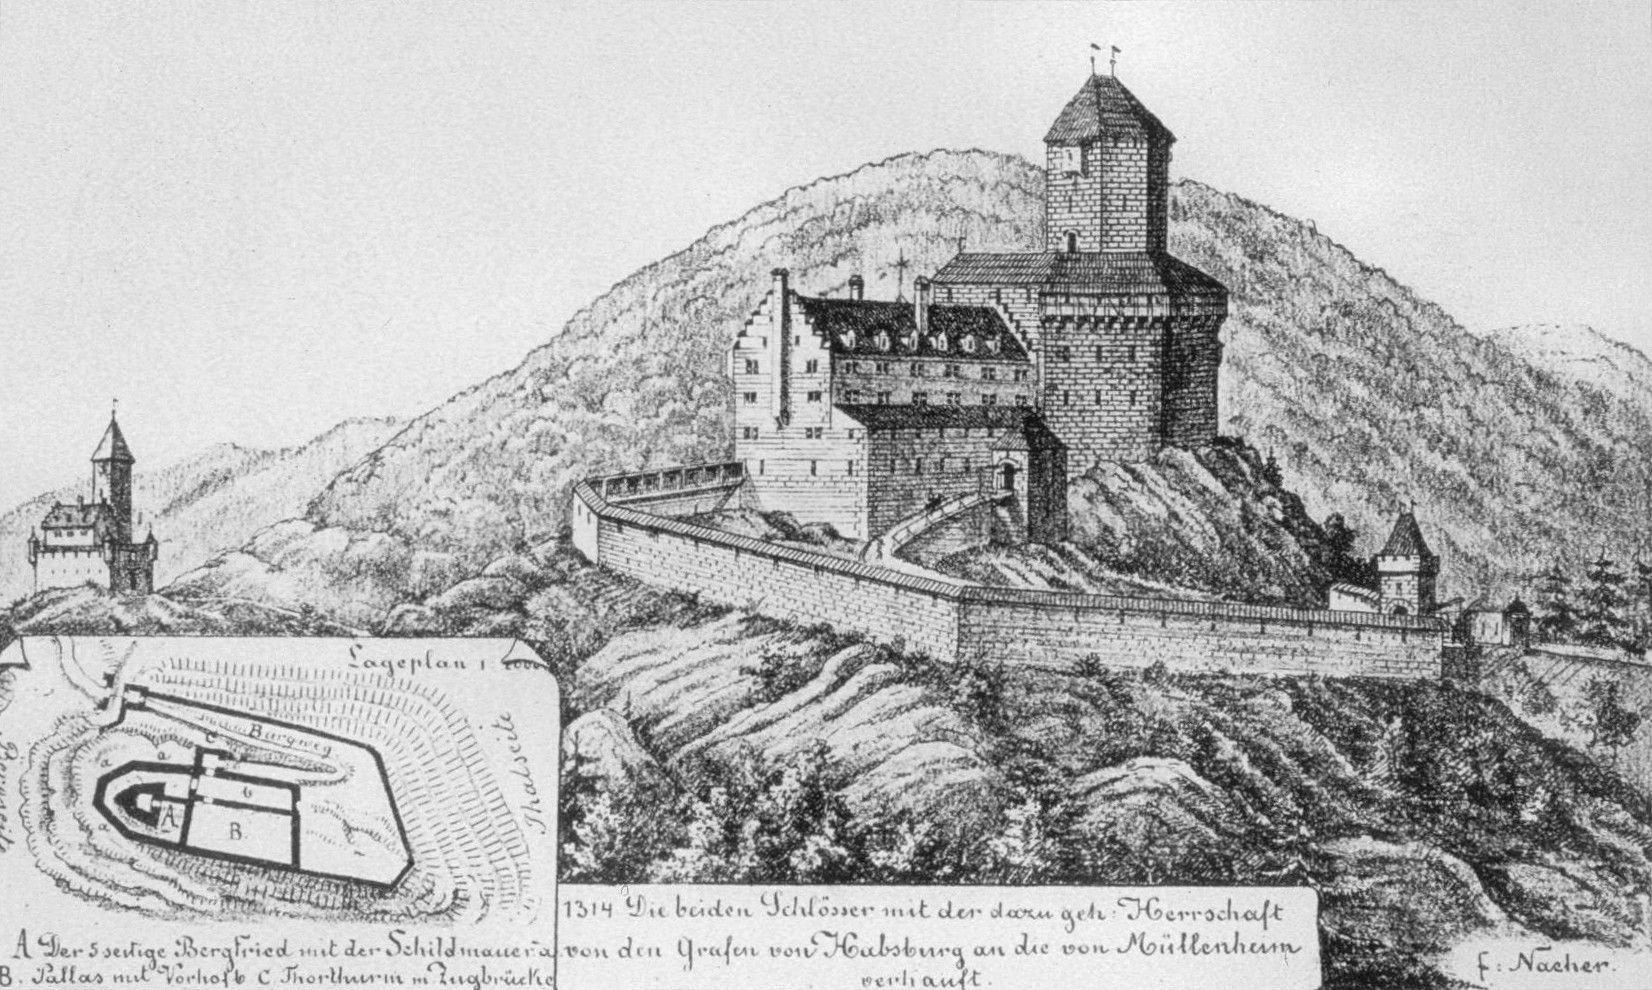 Lageplan 1
Burgweg
Thalseite
C
a
a
a
b
A
B.
A Der 5 seitige Bergfried mit der Schildmauer a.
B. Pallas mit Vorhof b C. Thorthurm m Zugbrücke
1314 Die beiden Schlösser mit der dazu geh: Herrschaft
von den Grafen von Habsburg an die von Müllenheim
verkauft.
f: Nacher.